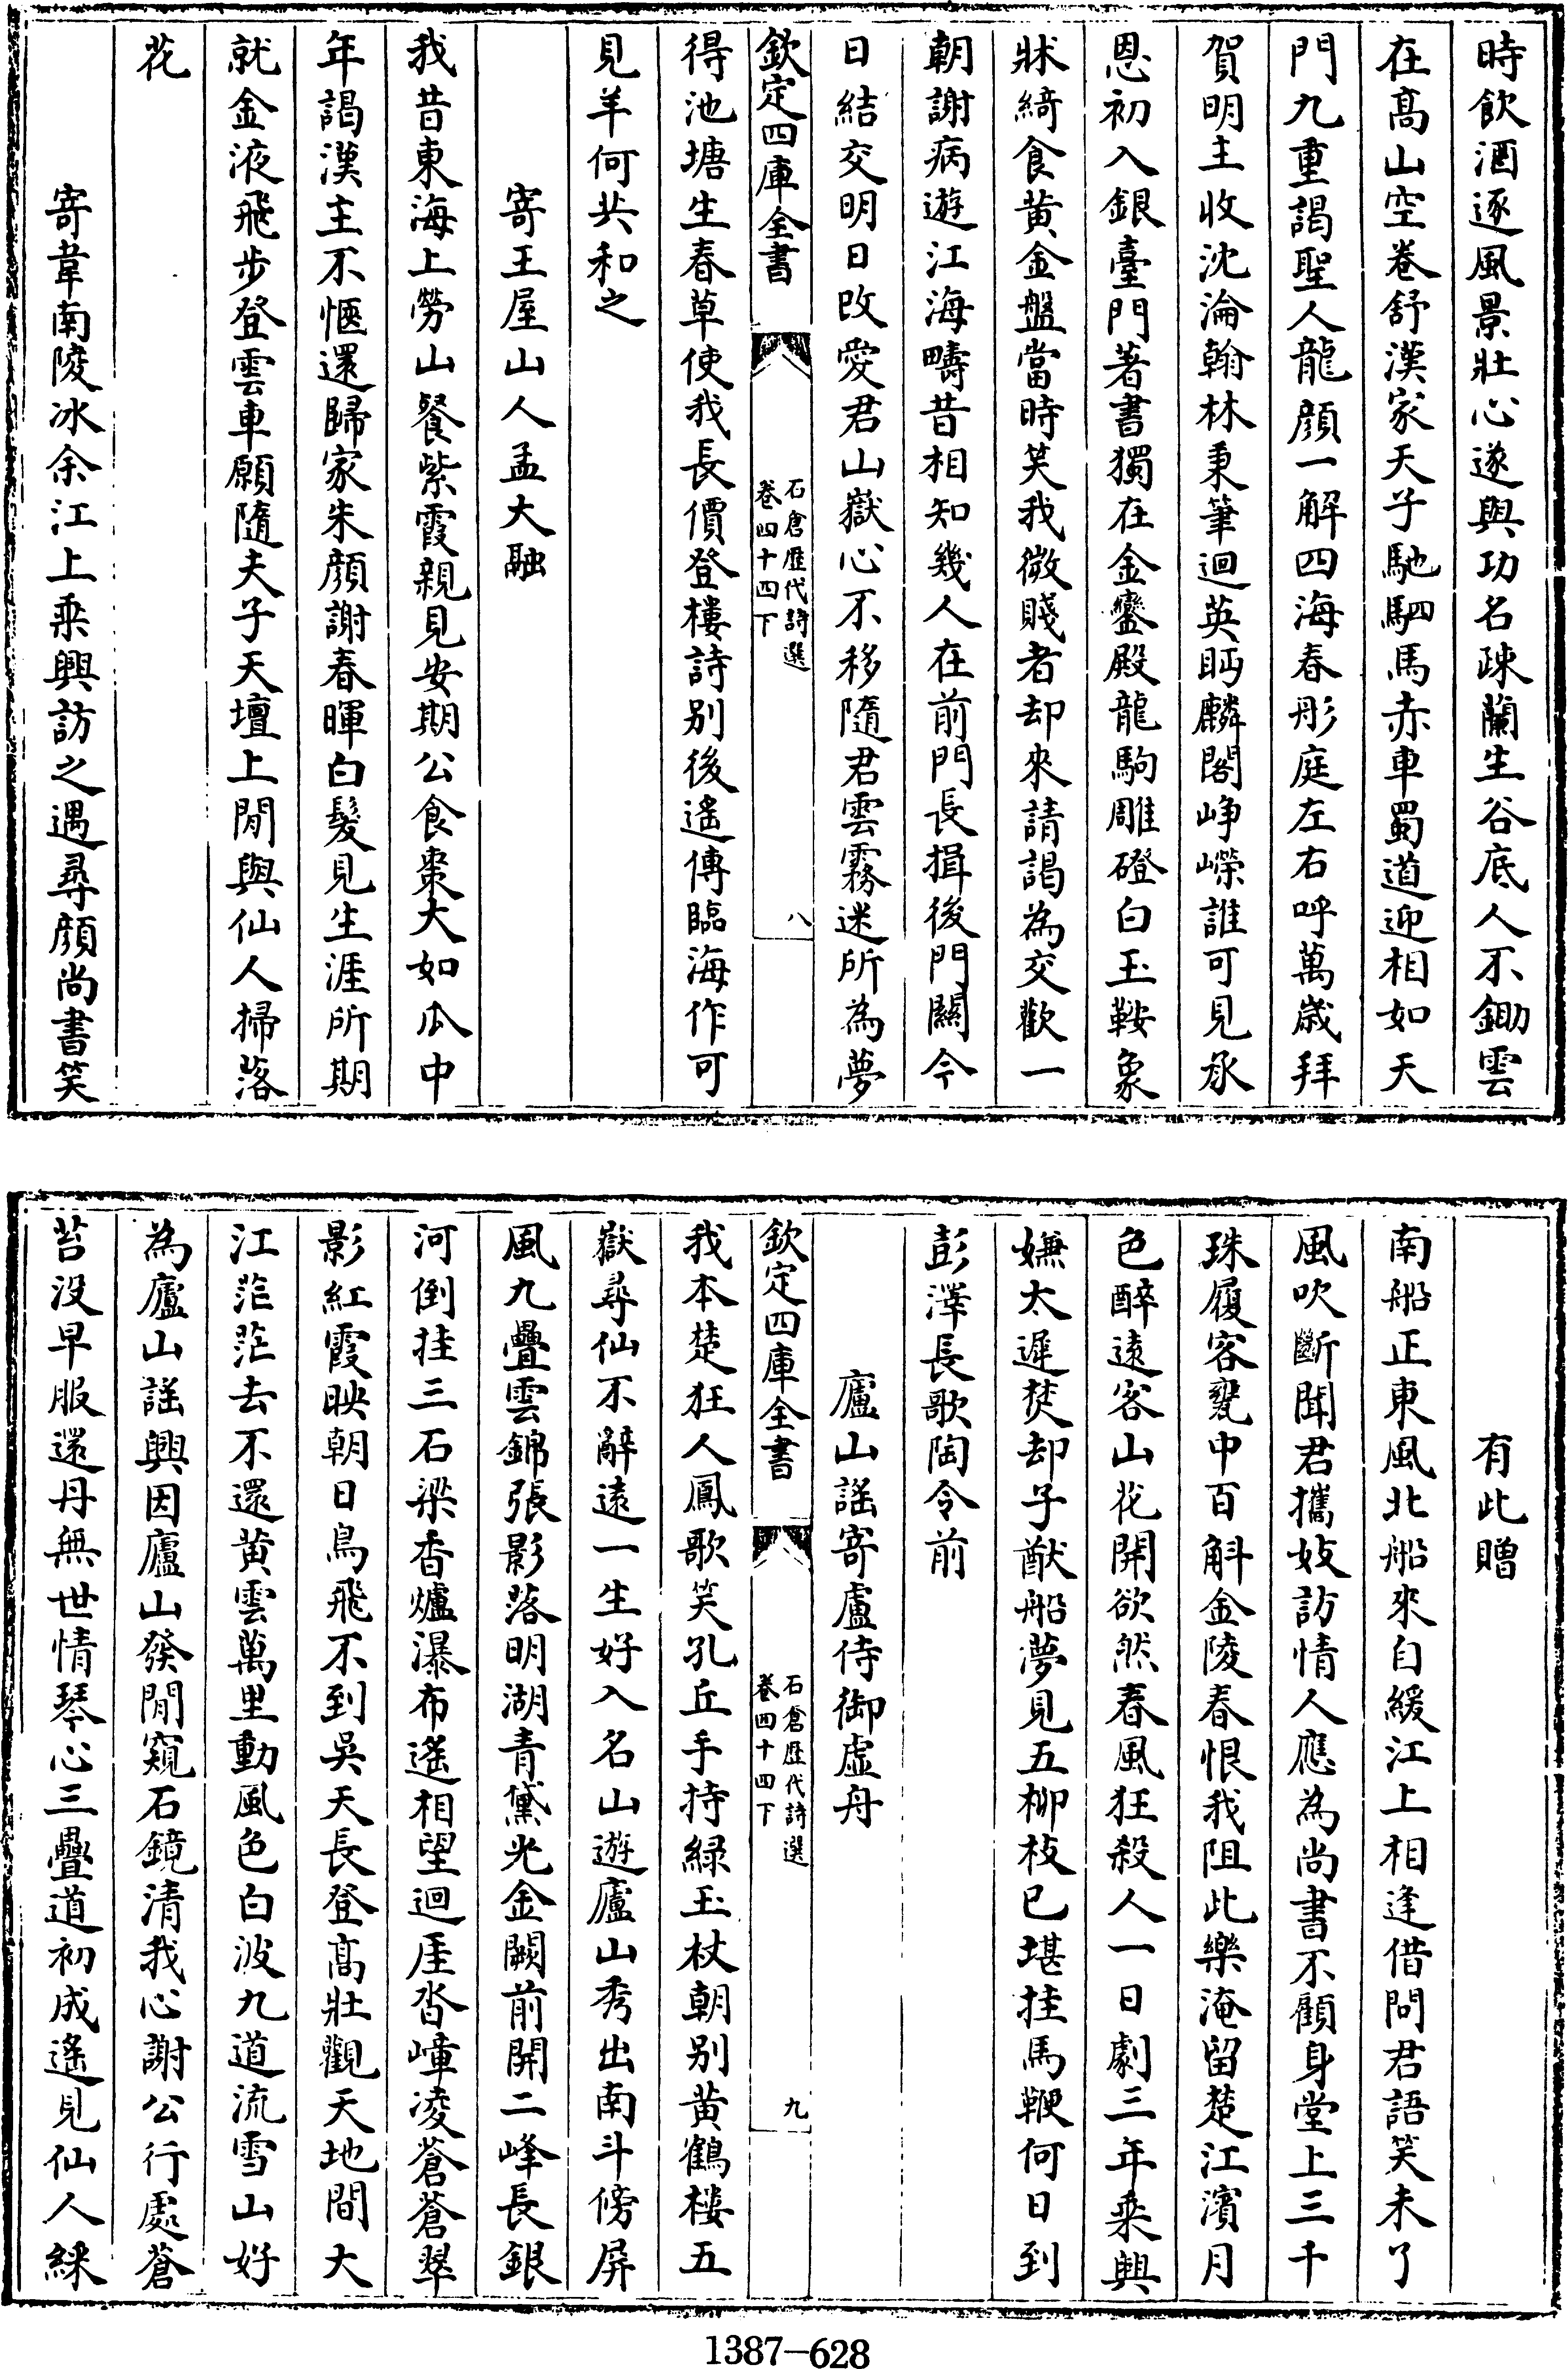 時飲酒逐風景壯心遂與功名疎蘭生谷底人不鋤雲
在高山空卷舒漢家天子馳駟馬赤車蜀道迎相如天
門九重謁聖人龍顔一解四海春彤庭左右呼萬歲拜
賀明主收沈淪翰林秉筆迴英眄麟閣崢嶸誰可見承
恩初入銀臺門著書獨在金鑾殿龍駒雕磴白玉鞍象
牀綺食黄金盤當時笑我微賤者却來請謁為交歡一
朝謝病遊江海疇昔相知幾人在前門長揖後門闗今
日結交明日改愛君山嶽心不移隨君雲霧迷所為夢
欽定四庫全書
石倉歷代詩選
卷四十四下
八
得池塘生春草使我長價登樓詩别後遙傳臨海作可
見羊何共和之
寄王屋山人孟大融
我昔東海上勞山餐紫霞親見安期公食棗大如瓜中
年謁漢主不愜還歸家朱顔謝春暉白髮見生涯所期
就金液飛步登雲車願隨夫子天壇上閒與仙人掃落
花
寄韋南陵冰余江上乘興訪之遇尋顔尚書笑
有此贈
南船正東風北船來自緩江上相逢借問君語笑未了
風吹斷聞君攜妓訪情人應為尚書不顧身堂上三千
珠履客甕中百斛金陵春恨我阻此樂淹留楚江濱月
色醉遠客山花開欲然春風狂殺人一日劇三年乘興
嫌太遲焚却子猷船夢見五柳枝已堪挂馬鞭何日到
彭澤長歌陶令前
廬山謡寄盧侍御虛舟
欽定四庫全書
石倉歷代詩選
卷四十四下
九
我本楚狂人鳳歌笑孔丘手持緑玉杖朝别黄鶴樓五
嶽尋仙不辭遠一生好入名山遊廬山秀出南斗傍屏
風九疊雲錦張影落明湖青黛光金闕前開二峰長銀
河倒挂三石梁香爐瀑布遙相望迴厓沓嶂凌蒼蒼翠
影紅霞映朝日鳥飛不到吳天長登高壯觀天地間大
江茫茫去不還黄雲萬里動風色白波九道流雪山好
為廬山謡興因廬山發閒窺石鏡清我心謝公行處蒼
苔没早服還丹無世情琴心三疊道初成遙見仙人綵
1387–628